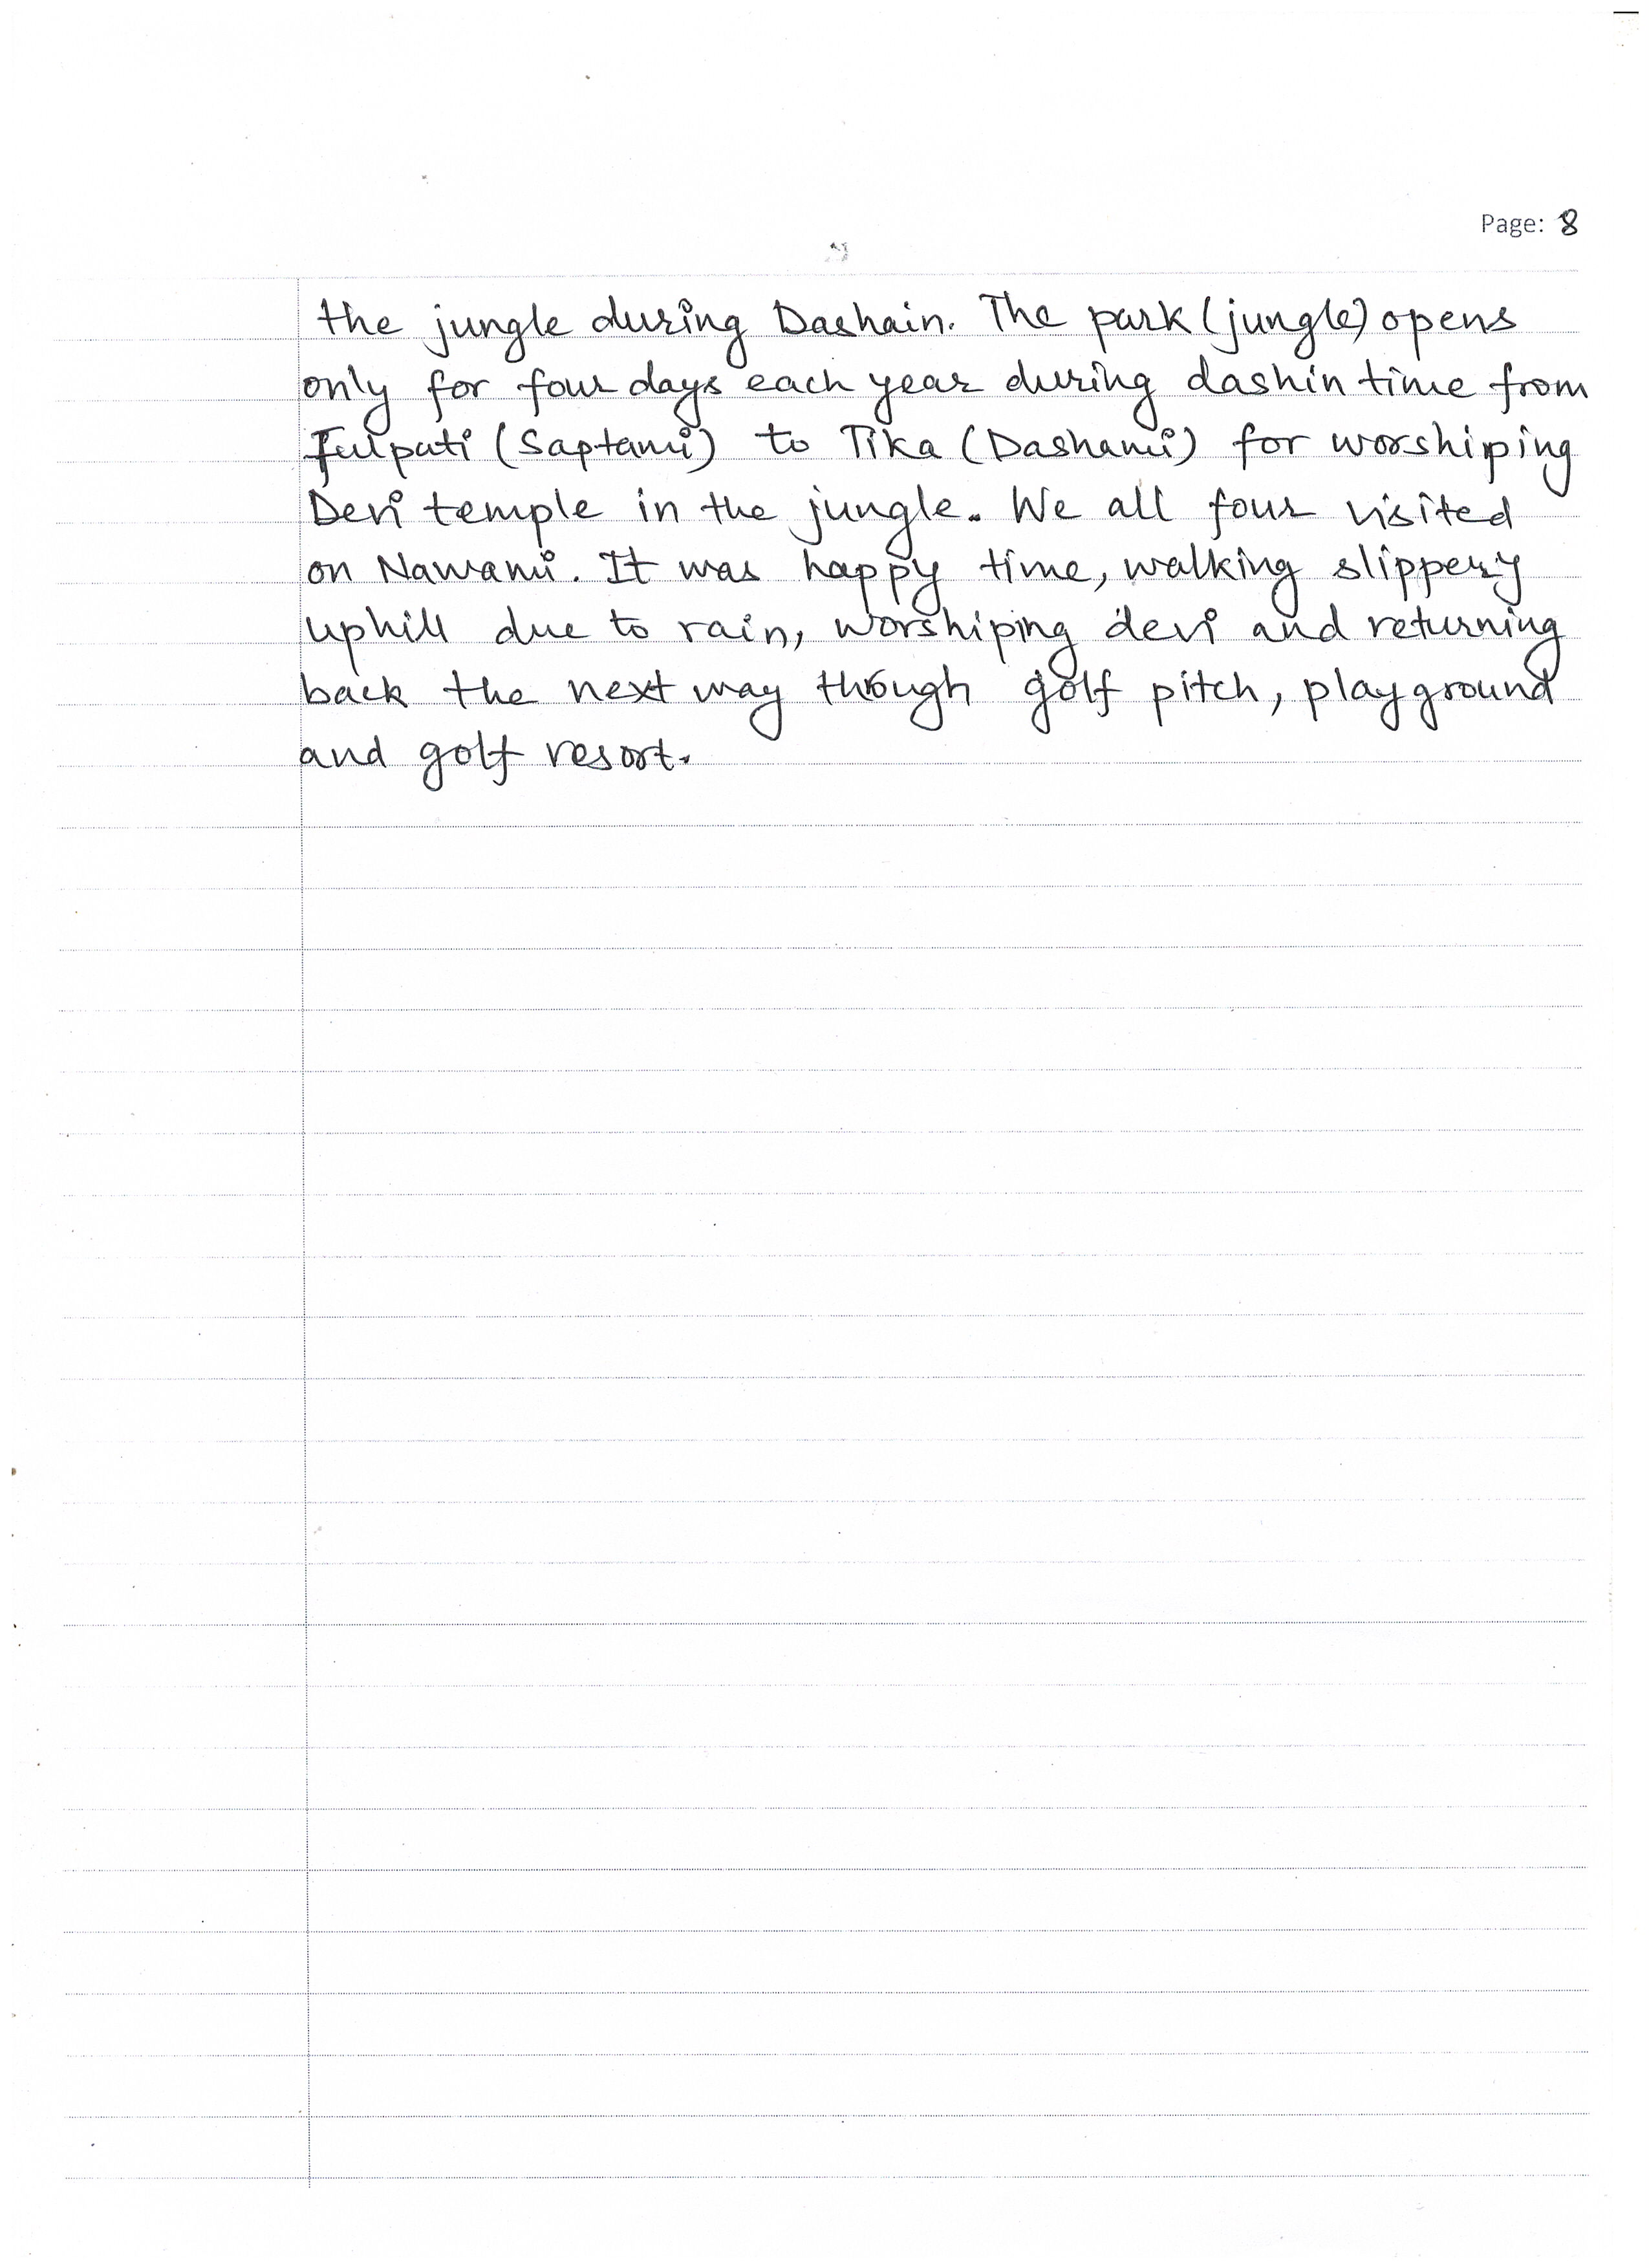 Page: 8
the jungle during Dashain. The park (jungle) opens
only for four days each year during dashin time from
Fulpati (Saptami) to Tika (Dashami) for worshiping
Devi temple in the jungle. We all four visited
on Nawami. It was happy time, walking slippery
uphill due to rain, worshiping devi and returning
back the next way though golf pitch, playground
and golf resort.